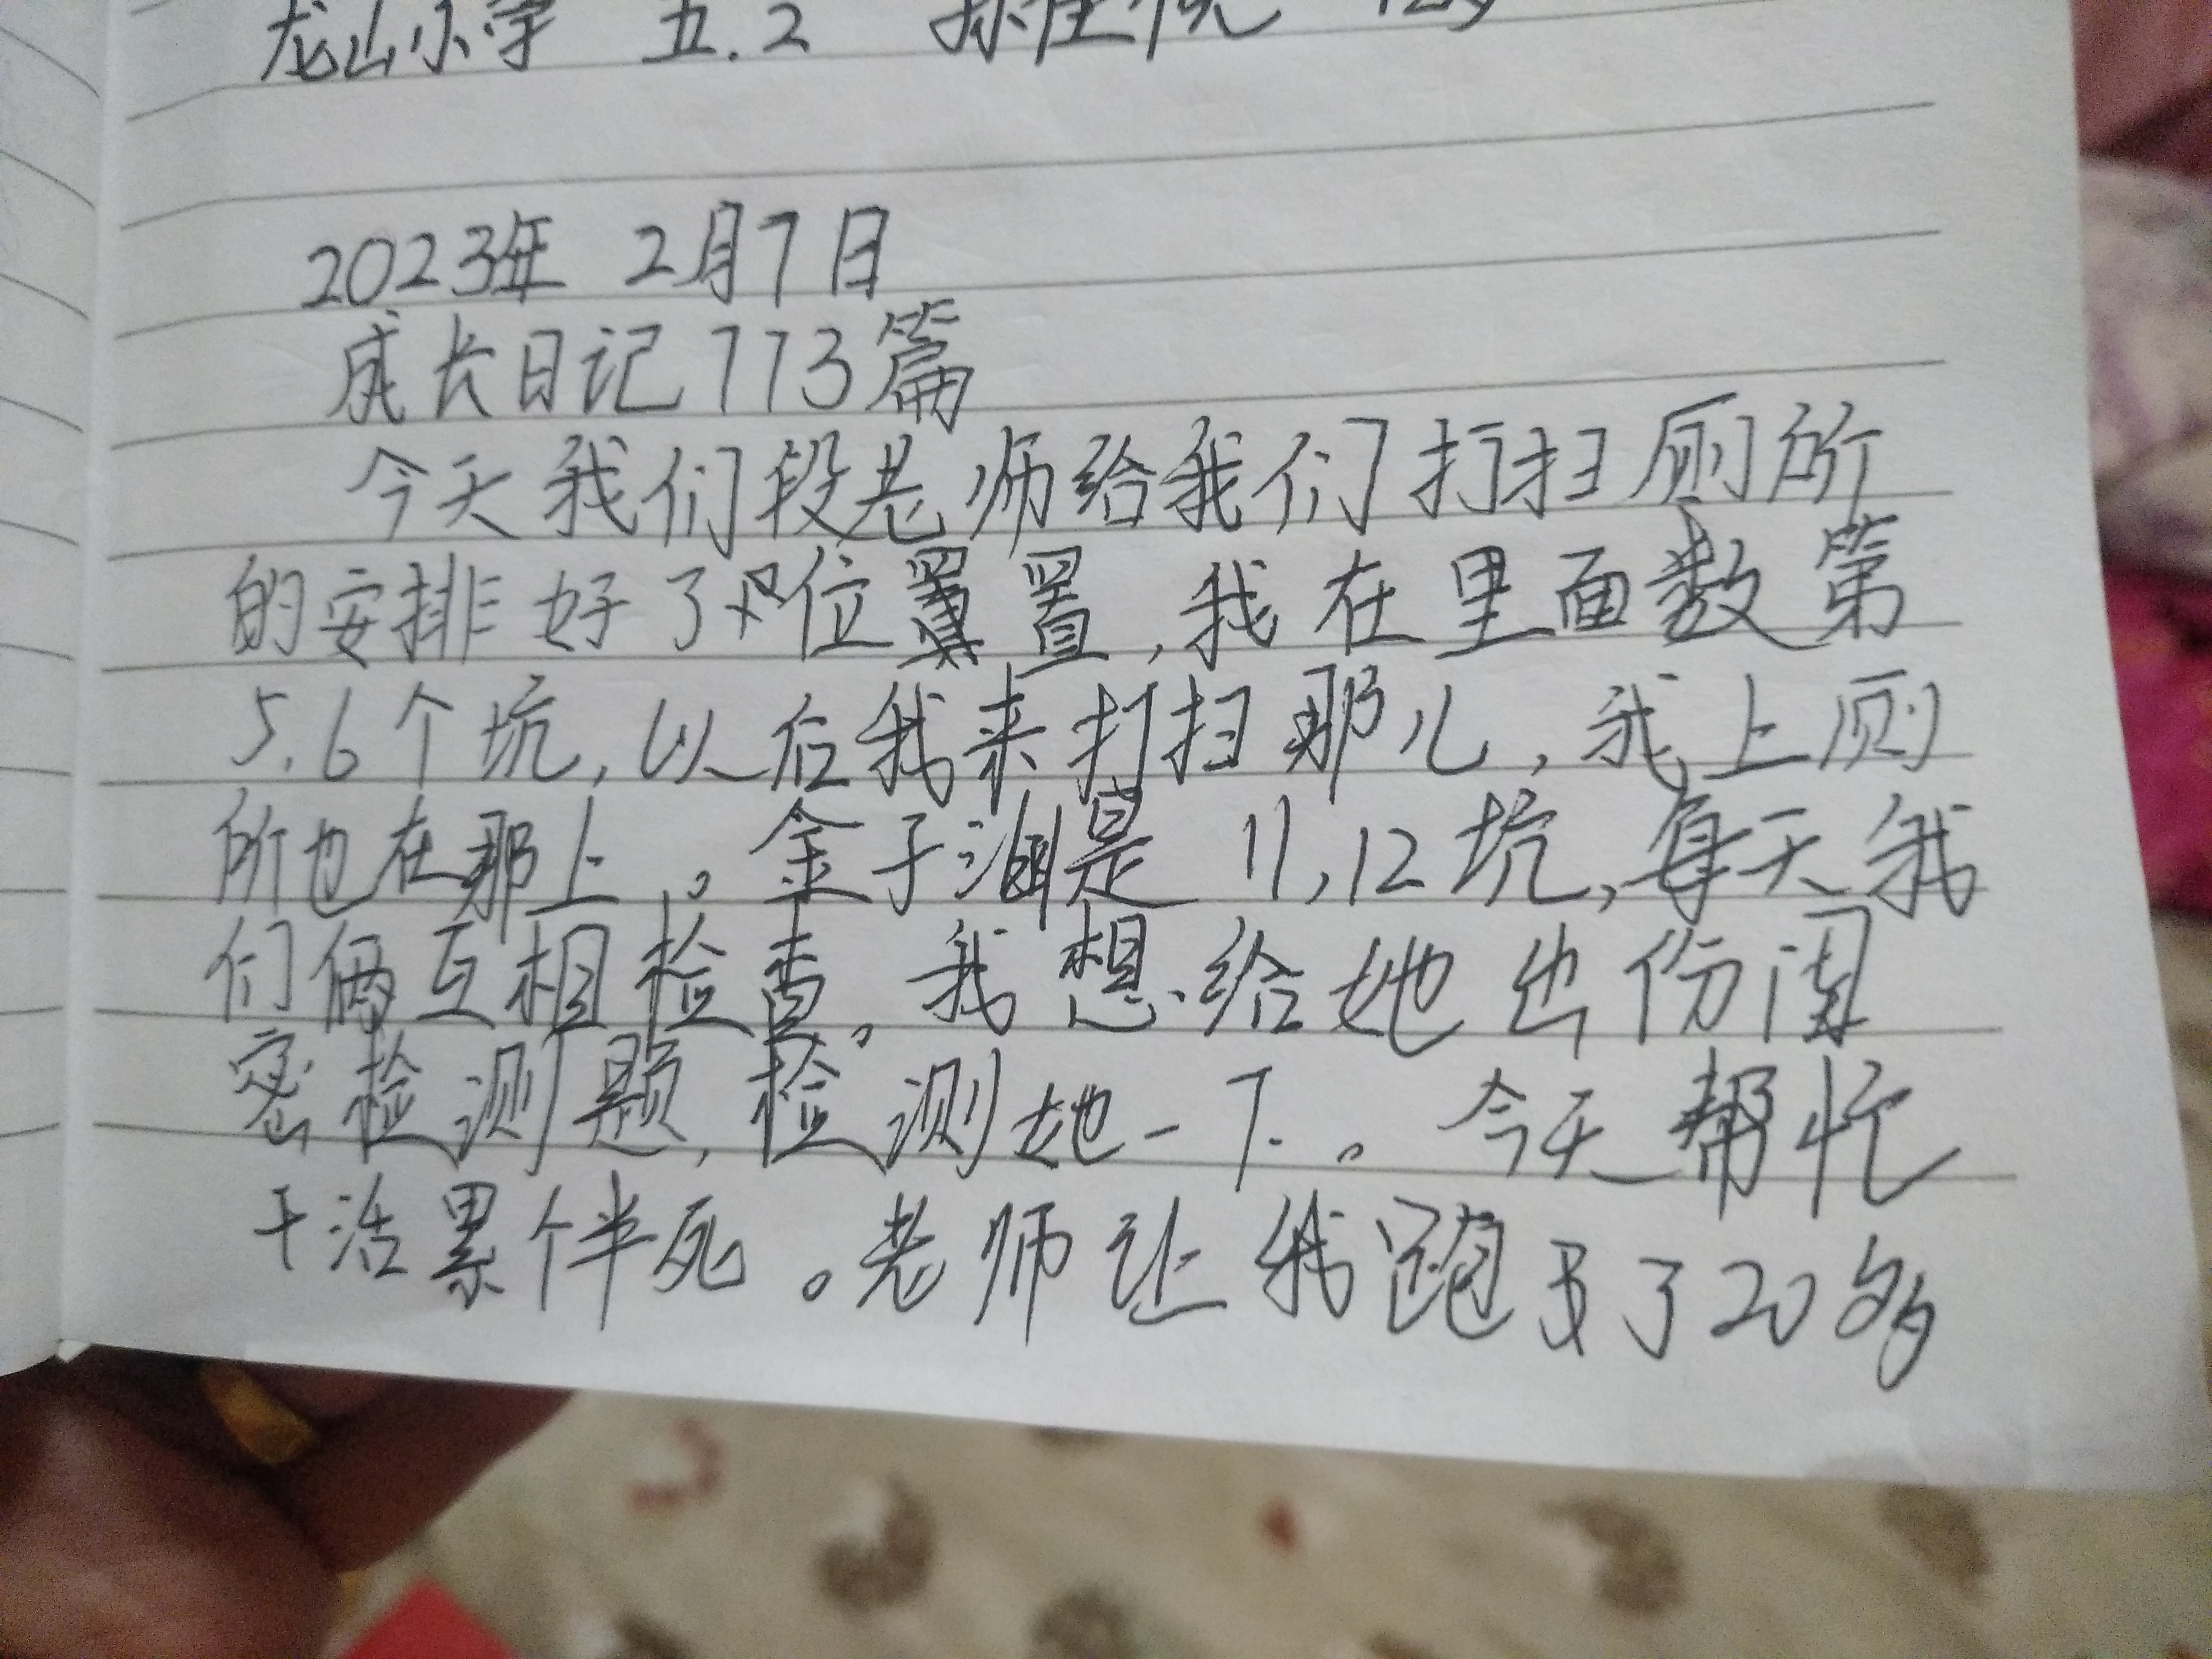 龙山小学 五.2
2023年 2月7日
成长日记773篇
今天我们段老师给我们打扫厕所
的安排好了位置,我在里面数第
5.6个坑,以后我来打扫那儿,我上厕
所也在那上。金子涵是11,12坑,每天我
们俩互相检查。我想给她出份闺
密检测题,检测她一下。今天帮忙
干活累个半死。老师让我跑了20多